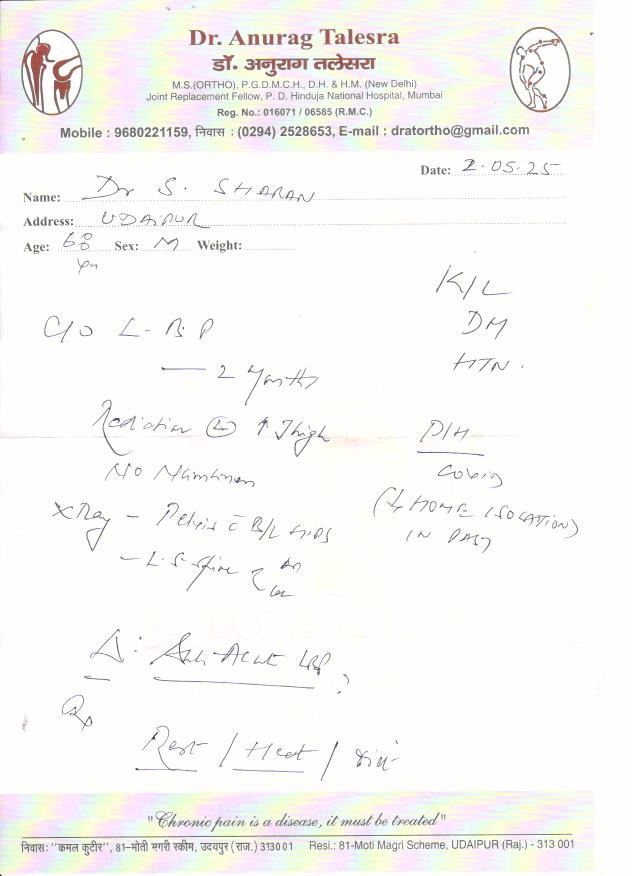 Dr. Anurag Talesra
डॉ. अनुराग तलेसरा
M.S.(ORTHO), P.G.D.M.C.H., D.H. & H.M. (New Delhi)
Joint Replacement Fellow, P. D. Hinduja National Hospital, Mumbai
Reg. No.: 016071 / 06585 (R.M.C.)
Mobile : 9680221159, निवास : (0294) 2528653, E-mail : dratortho@gmail.com
Date: 2.05.25
Name: Dr S. SHARAN
Address: UDAIPUR
Age: 68 Sex: M Weight:
yrs
K/L
DM
HTN.
C/O L-B.P
— 2 Months
Radiation (L) ↑ Thigh
No Numbness
P/H
Covid
(HOME ISOLATION)
IN PAST
X Ray - Pelvis c̄ B/L HIPS
- L.S Spine AP
Lat
Δ: Sub-Acute LBP ?
Rx
Rest / Heat /
"Chronic pain is a disease, it must be treated"
निवास: "कमल कुटीर", 81-मोती मगरी स्कीम, उदयपुर (राज.) 313001 Resi.: 81-Moti Magri Scheme, UDAIPUR (Raj.) - 313 001